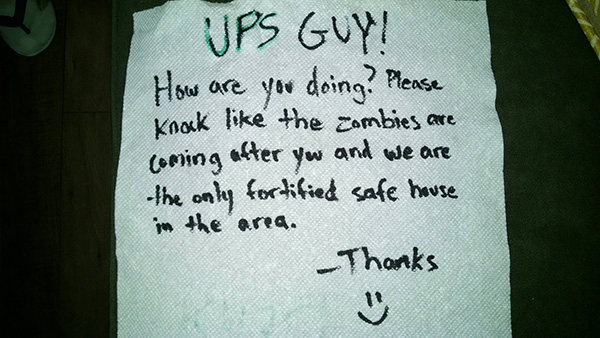 UPS GUY!
How are you doing? Please
Knock like the zombies are
coming after you and we are
the only fortified safe house
in the area.
- Thanks